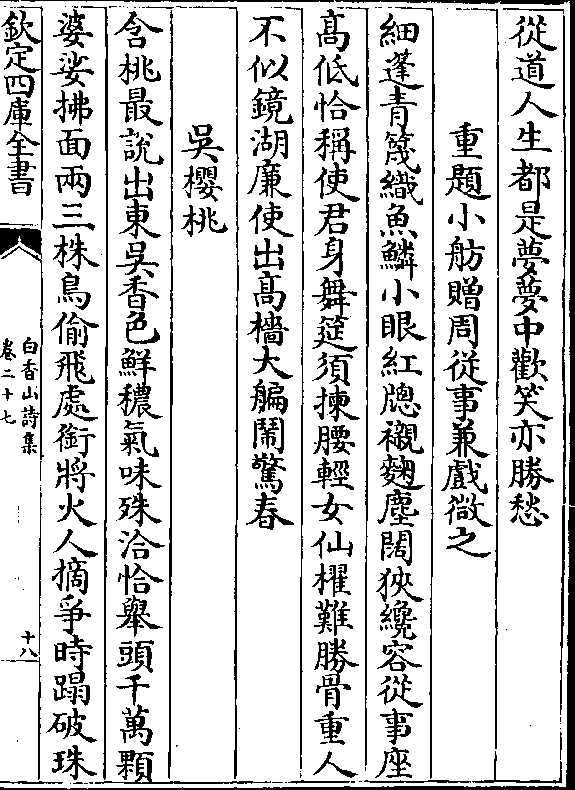 從道人生都是夢夢中歡笑亦勝愁
重題小舫贈周從事兼戲微之
細蓬青篾織魚鱗小眼紅牕襯麴塵闊狹纔容從事座
髙低恰稱使君身舞筵須揀腰輕女仙櫂難勝骨重人
不似鏡湖亷使出髙檣大艑鬧驚春
吳櫻桃
含桃最說出東吳香色鮮穠氣味殊洽恰舉頭千萬顆
婆娑拂面兩三株鳥偷飛處銜將火人摘爭時蹋破珠
欽定四庫全書
白香山詩集
卷二十七
十八